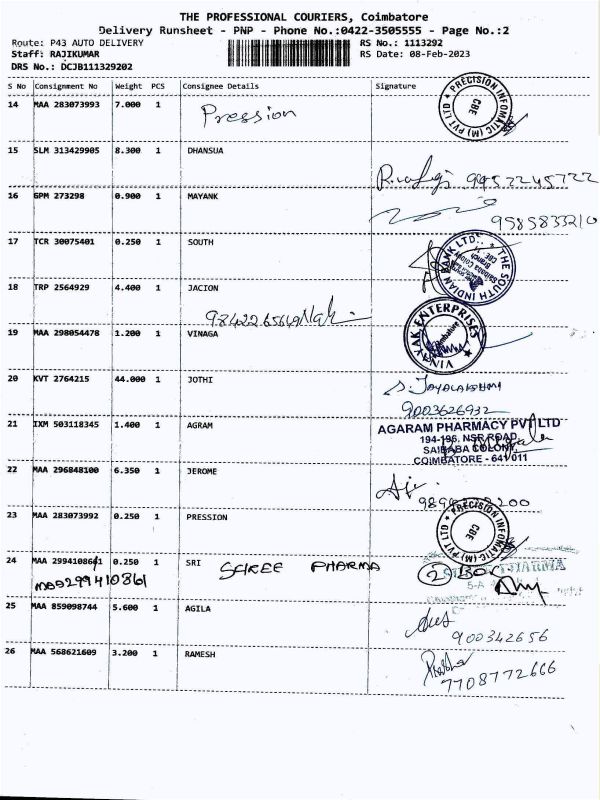 THE PROFESSIONAL COURIERS, Coimbatore
Delivery Runsheet - PNP - Phone No.:0422-3505555 - Page No.:2
Route: P43 AUTO DELIVERY RS No.: 1113292
Staff: RAJIKUMAR RS Date: 08-Feb-2023
DRS No.: DCJB111329202
S No Consignment No Weight PCS Consignee Details Signature
14 MAA 283073993 7.000 1 Pression PRECISION INFOMATIC (M) PVT LTD * CBE
15 SLM 313429905 8.300 1 DHANSUA
9952245722
16 GPM 273298 0.900 1 MAYANK
9585833210
17 TCR 30075401 0.250 1 SOUTH THE SOUTH INDIAN BANK LTD.
18 TRP 2564929 4.400 1 JACION
9842265649
19 MAA 298054478 1.200 1 VINAGA VINAYAK ENTERPRISES Coimbatore
20 KVT 2764215 44.000 1 JOTHI S. JAYALAKSHMI
9003626932
21 IXM 503118345 1.400 1 AGRAM AGARAM PHARMACY PVT LTD
194-196, NSR ROAD,
SAIBABA COLONY,
COIMBATORE - 641 011
22 MAA 296848100 6.350 1 JEROME
23 MAA 283073992 0.250 1 PRESSION PRECISION INFOMATIC (M) PVT LTD * CBE
24 MAA 2994108641 0.250 1 SRI SHREE PHARMA
MAA299410861
25 AGILA MAA 859098744 5.600 1
900342656
26 MAA 568621609 3.200 1 RAMESH
7708772666